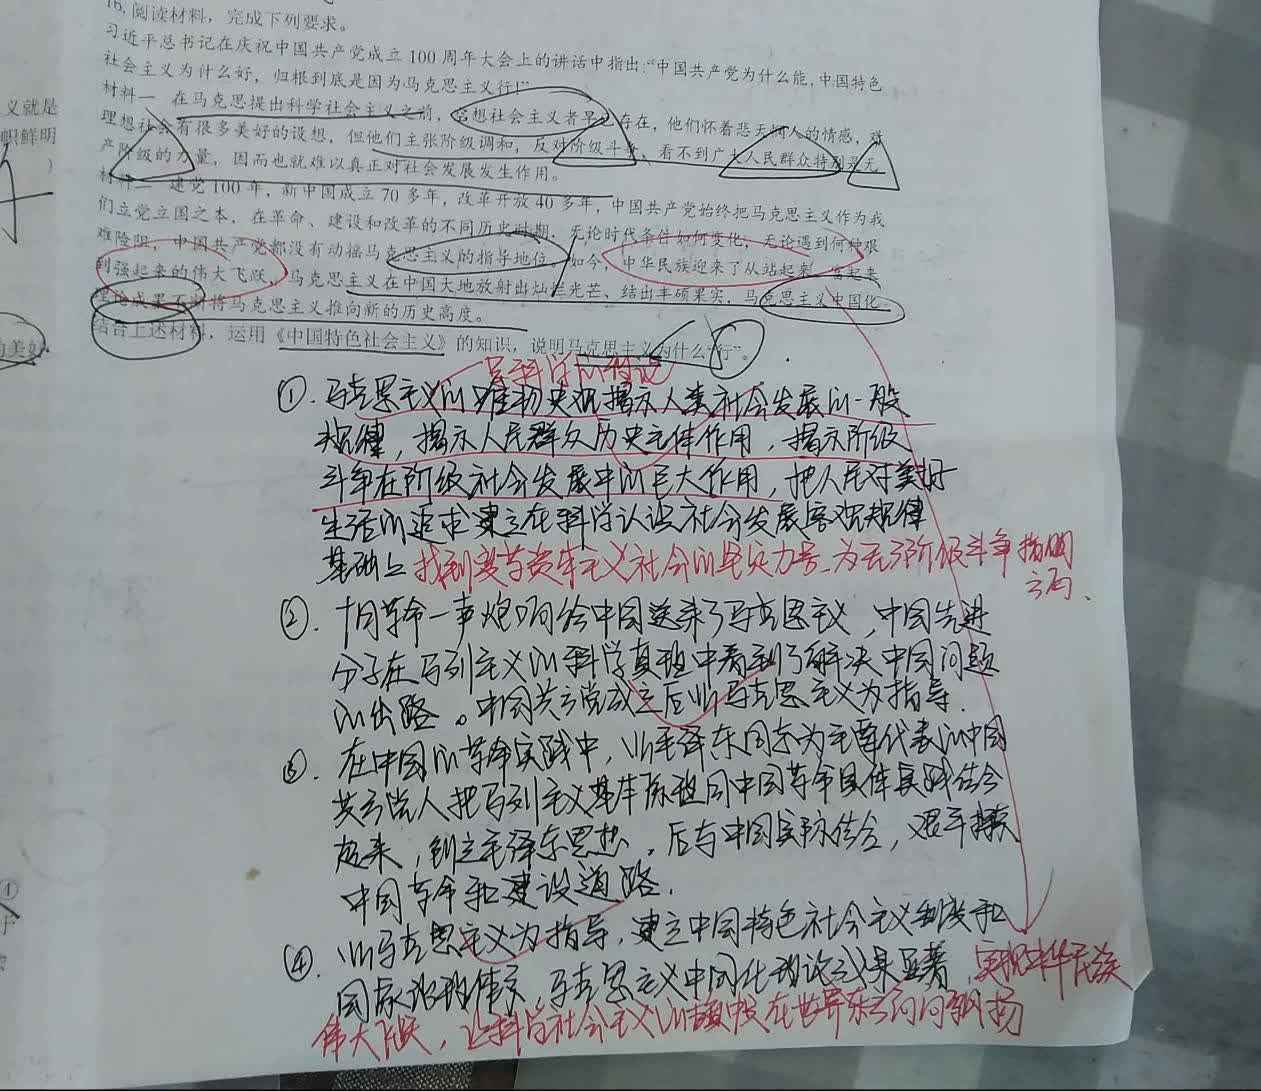 16.阅读材料，完成下列要求。
习近平总书记在庆祝中国共产党成立100周年大会上的讲话中指出:“中国共产党为什么能,中国特色
社会主义为什么好，归根到底是因为马克思主义行!”
材料一 在马克思提出科学社会主义之前，空想社会主义者早已存在，他们怀着悲天悯人的情感，对
理想社会有很多美好的设想，但他们主张阶级调和，反对阶级斗争、看不到广大人民群众特别是无
产阶级的力量，因而也就难以真正对社会发展发生作用。
材料二 建党100年，新中国成立70多年，改革开放40多年，中国共产党始终把马克思主义作为我
们立党立国之本，在革命、建设和改革的不同历史时期，无论时代条件如何变化，无论遇到何种艰
难险阻，中国共产党都没有动摇马克思主义的指导地位。如今，中华民族迎来了从站起来、富起来
到强起来的伟大飞跃，马克思主义在中国大地放射出灿烂光芒、结出丰硕果实，马克思主义中国化
理论成果不断将马克思主义推向新的历史高度。
结合上述材料，运用《中国特色社会主义》的知识，说明马克思主义为什么“行”。
义就是
朝鲜明
)
的美好
是科学的理论
①.马克思主义的唯物史观揭示人类社会发展的一般
规律，揭示人民群众历史主体作用，揭示阶级
斗争在阶级社会发展中的巨大作用，把人民对美好
生活的追求建立在科学认识社会发展客观规律
基础上 找到变革资本主义社会的现实力量、为无产阶级斗争指明
方向、
②.十月革命一声炮响给中国送来了马克思主义，中国先进
分子在马列主义的科学真理中看到了解决中国问题
的出路。中国共产党成立后以马克思主义为指导.
③.在中国的革命实践中，以毛泽东同志为主要代表的中国
共产党人把马列主义基本原理同中国革命具体实践结合
起来，创立毛泽东思想，后与中国实际结合，艰辛探索
中国革命和建设道路.
④.以马克思主义为指导，建立中国特色社会主义制度和
国家治理体系，马克思主义中国化理论成果显著，实现中华民族
伟大飞跃，让科学社会主义的旗帜在世界东方高高飘扬